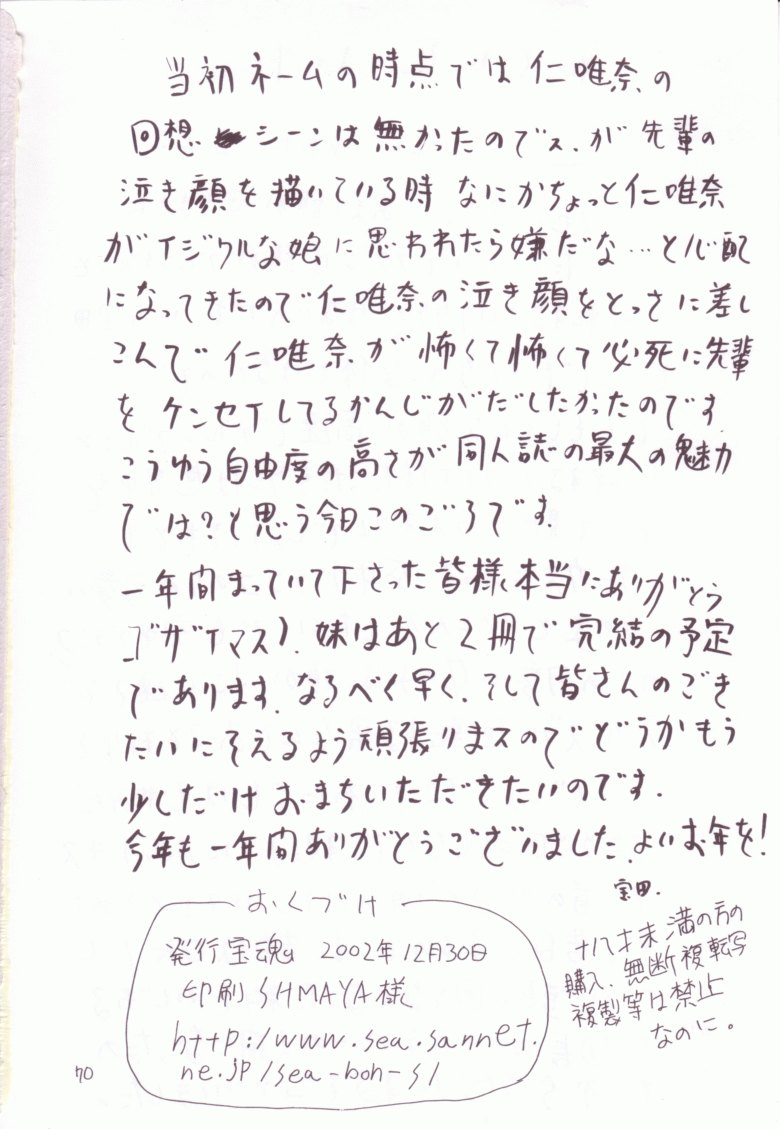 当初ネームの時点では仁唯奈の
回想 シーンは無かったのでス.が先輩の
泣き顔を描いている時 なにかちょっと仁唯奈
がイジワルな娘に思われたら嫌だな…と心配
になってきたので仁唯奈の泣き顔をとっさに差し
こんで 仁唯奈が怖くて怖くて必死に先輩
を ケンセイしてるかんじがだしたかったのです
こうゆう自由度の高さが同人誌の最大の魅力
では?と思う今日このごろです.
一年間まっていて下さった皆様本当にありがとう
ゴザイマス).妹はあと2冊で完結の予定
であります.なるべく早く.そして皆さんのごき
たいにそえるよう頑張りまスのでどうかもう
少しだけ おまちいただきたいのです.
今年も一年間ありがとうございました.よいお年を!
宝田.
おくづけ
発行宝魂 2002年12月30日
印刷 SHMAYA様
http:/www.sea.sannet.
ne.jp/sea-boh-s/
十八才未満の方の
購入、無断複転写
複製等は禁止
なのに。
70